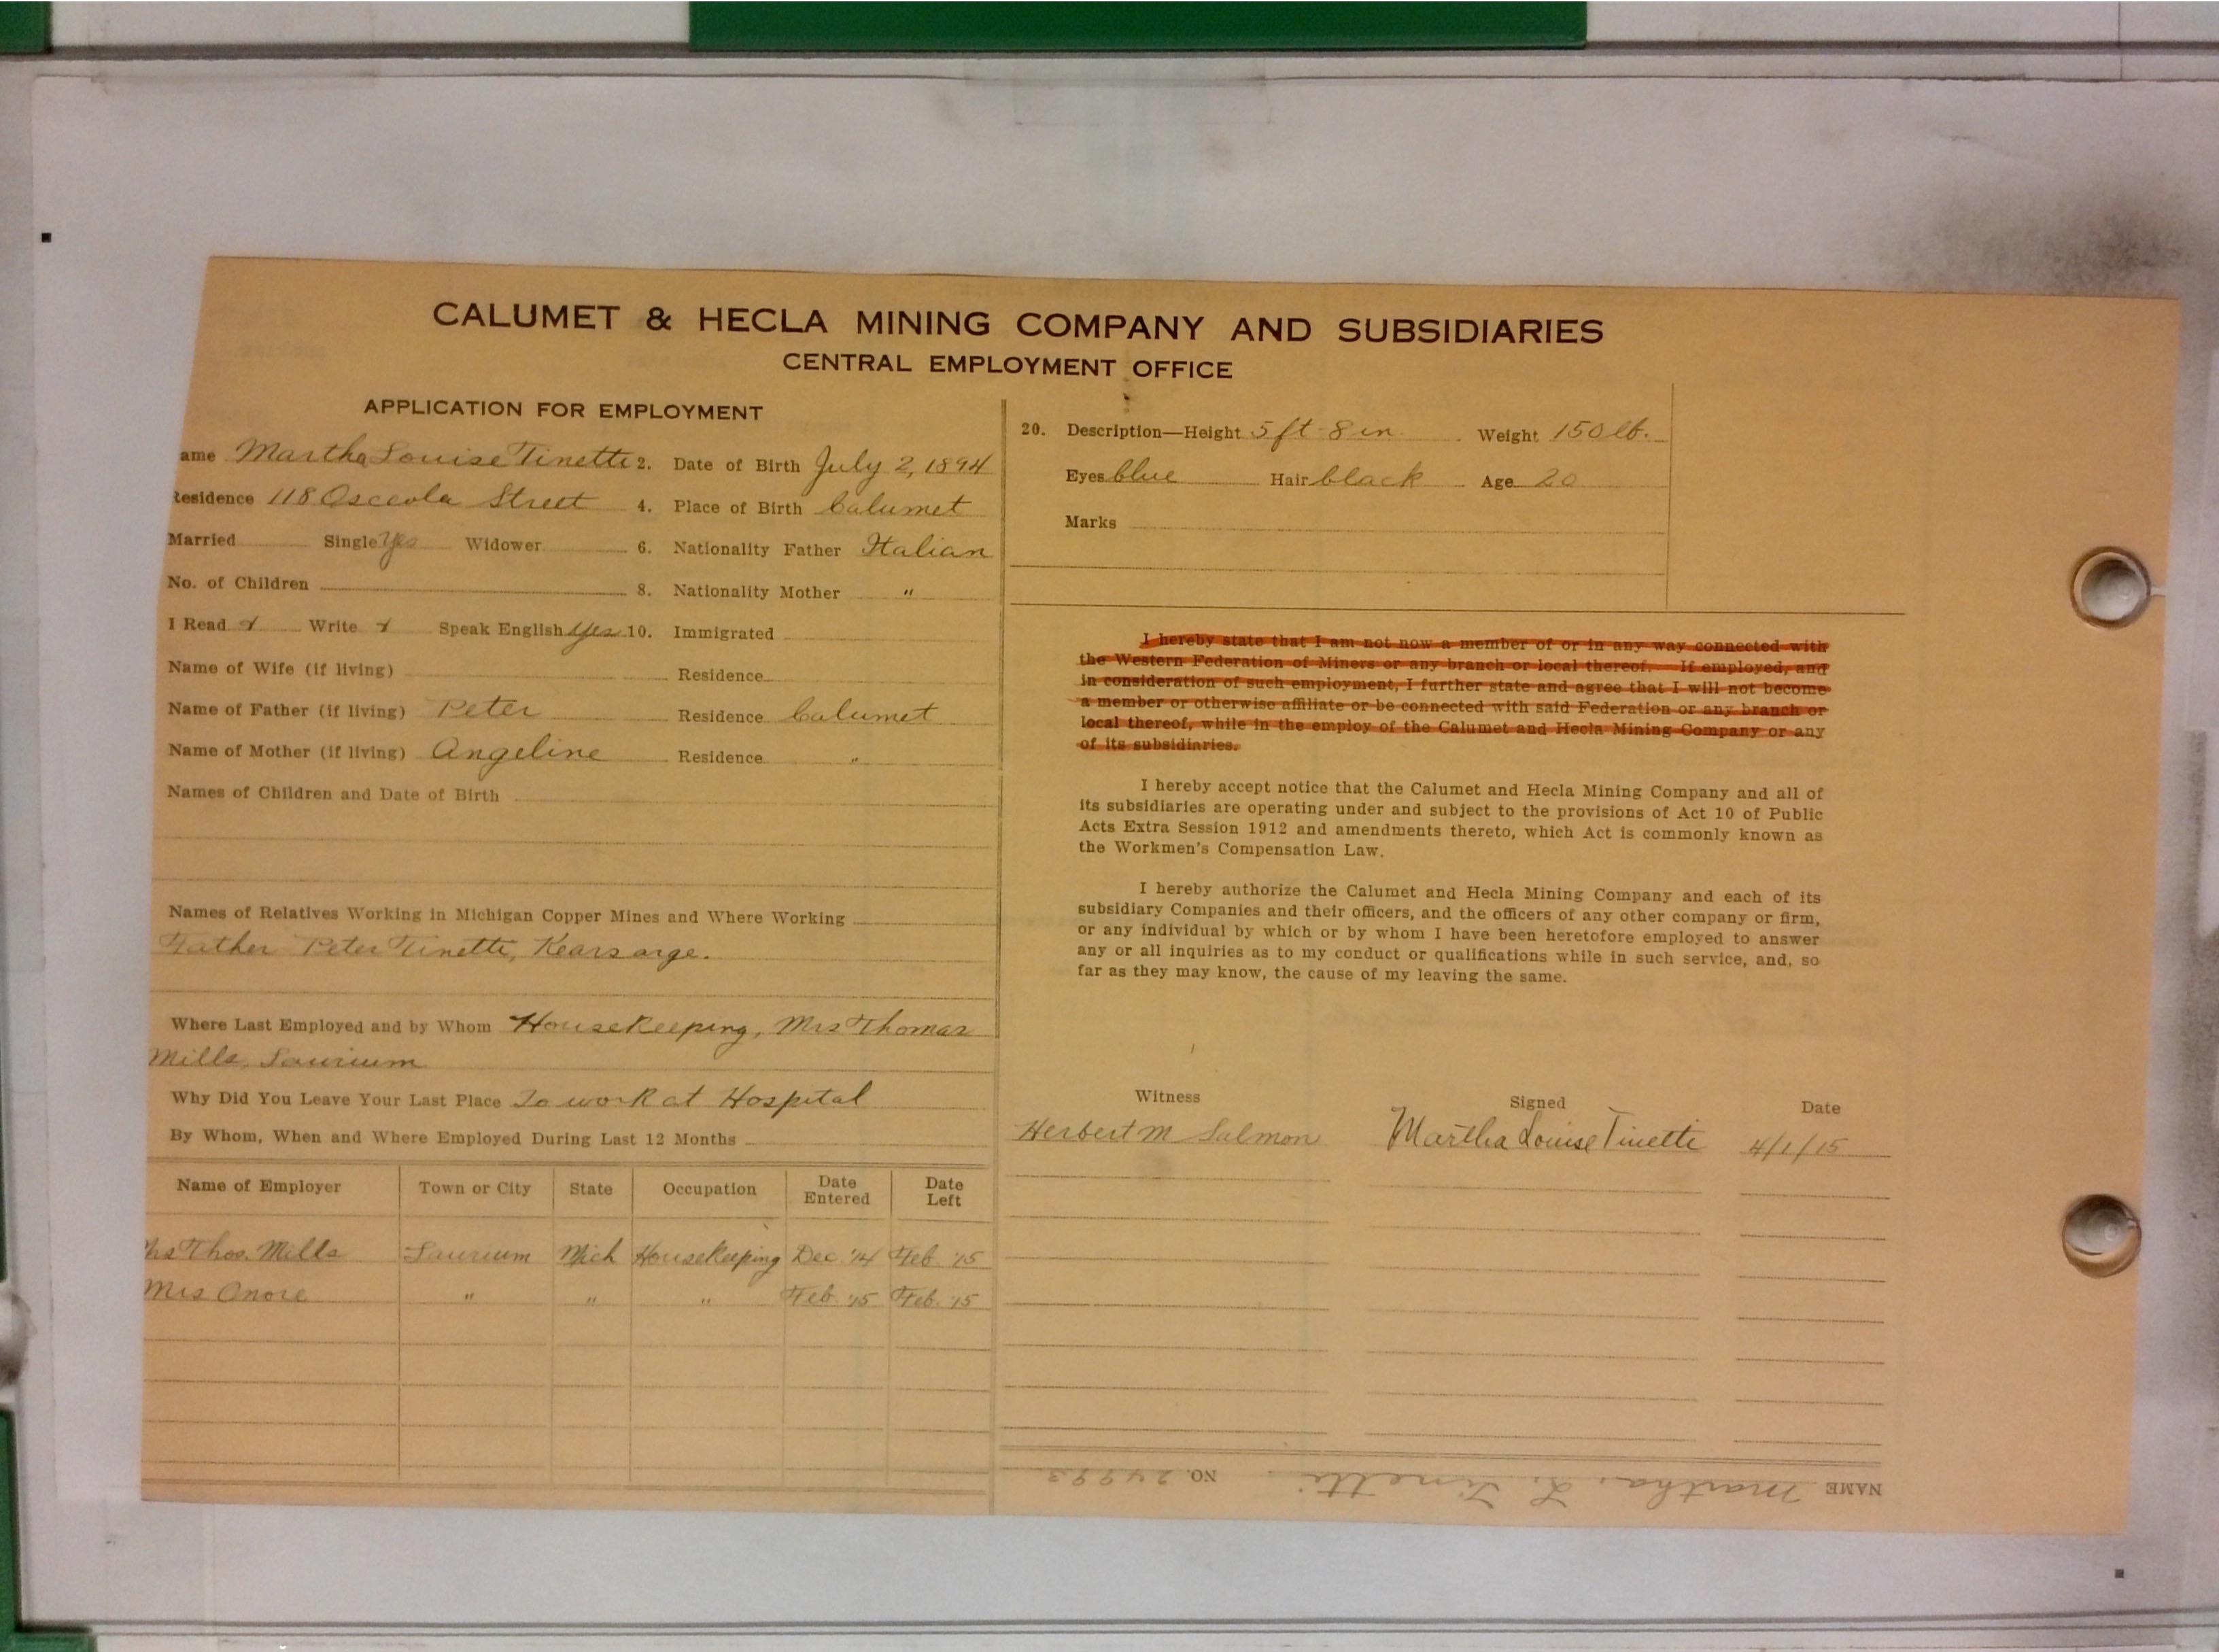 CALUMET & HECLA MINING COMPANY AND SUBSIDIARIES
CENTRAL EMPLOYMENT OFFICE
APPLICATION FOR EMPLOYMENT
ame Martha Louise Tinetti 2. Date of Birth July 2, 1894
Residence 118 Osceola Street 4. Place of Birth Calumet
Married Single Yes Widower 6. Nationality Father Italian
No. of Children 8. Nationality Mother "
I Read Write Speak English Yes 10. Immigrated
Name of Wife (if living) Residence
Name of Father (if living) Peter Residence Calumet
Name of Mother (if living) Angeline Residence "
Names of Children and Date of Birth
Names of Relatives Working in Michigan Copper Mines and Where Working
Father Peter Tinetti, Kearsarge.
Where Last Employed and by Whom Housekeeping, Mrs Thomas
Mills, Laurium
Why Did You Leave Your Last Place To work at Hospital
By Whom, When and Where Employed During Last 12 Months
Name of Employer Town or City State Occupation Date Entered Date Left
Mrs Thos. Mills Laurium Mich Housekeeping Dec '14 Feb. '15
Mrs " " " Feb. '15 Feb. '15
20. Description—Height 5 ft 8 in. Weight 150 lb.
Eyes blue Hair black Age 20
Marks
I hereby state that I am not now a member of or in any way connected with
the Western Federation of Miners or any branch or local thereof. If employed, and
in consideration of such employment, I further state and agree that I will not become
a member or otherwise affiliate or be connected with said Federation or any branch or
local thereof, while in the employ of the Calumet and Hecla Mining Company or any
of its subsidiaries.
I hereby accept notice that the Calumet and Hecla Mining Company and all of
its subsidiaries are operating under and subject to the provisions of Act 10 of Public
Acts Extra Session 1912 and amendments thereto, which Act is commonly known as
the Workmen's Compensation Law.
I hereby authorize the Calumet and Hecla Mining Company and each of its
subsidiary Companies and their officers, and the officers of any other company or firm,
or any individual by which or by whom I have been heretofore employed to answer
any or all inquiries as to my conduct or qualifications while in such service, and, so
far as they may know, the cause of my leaving the same.
Witness Signed Date
Herbert M Salmon Martha Louise Tinetti 4/1/15
NAME Martha L. Tinetti NO. 24993